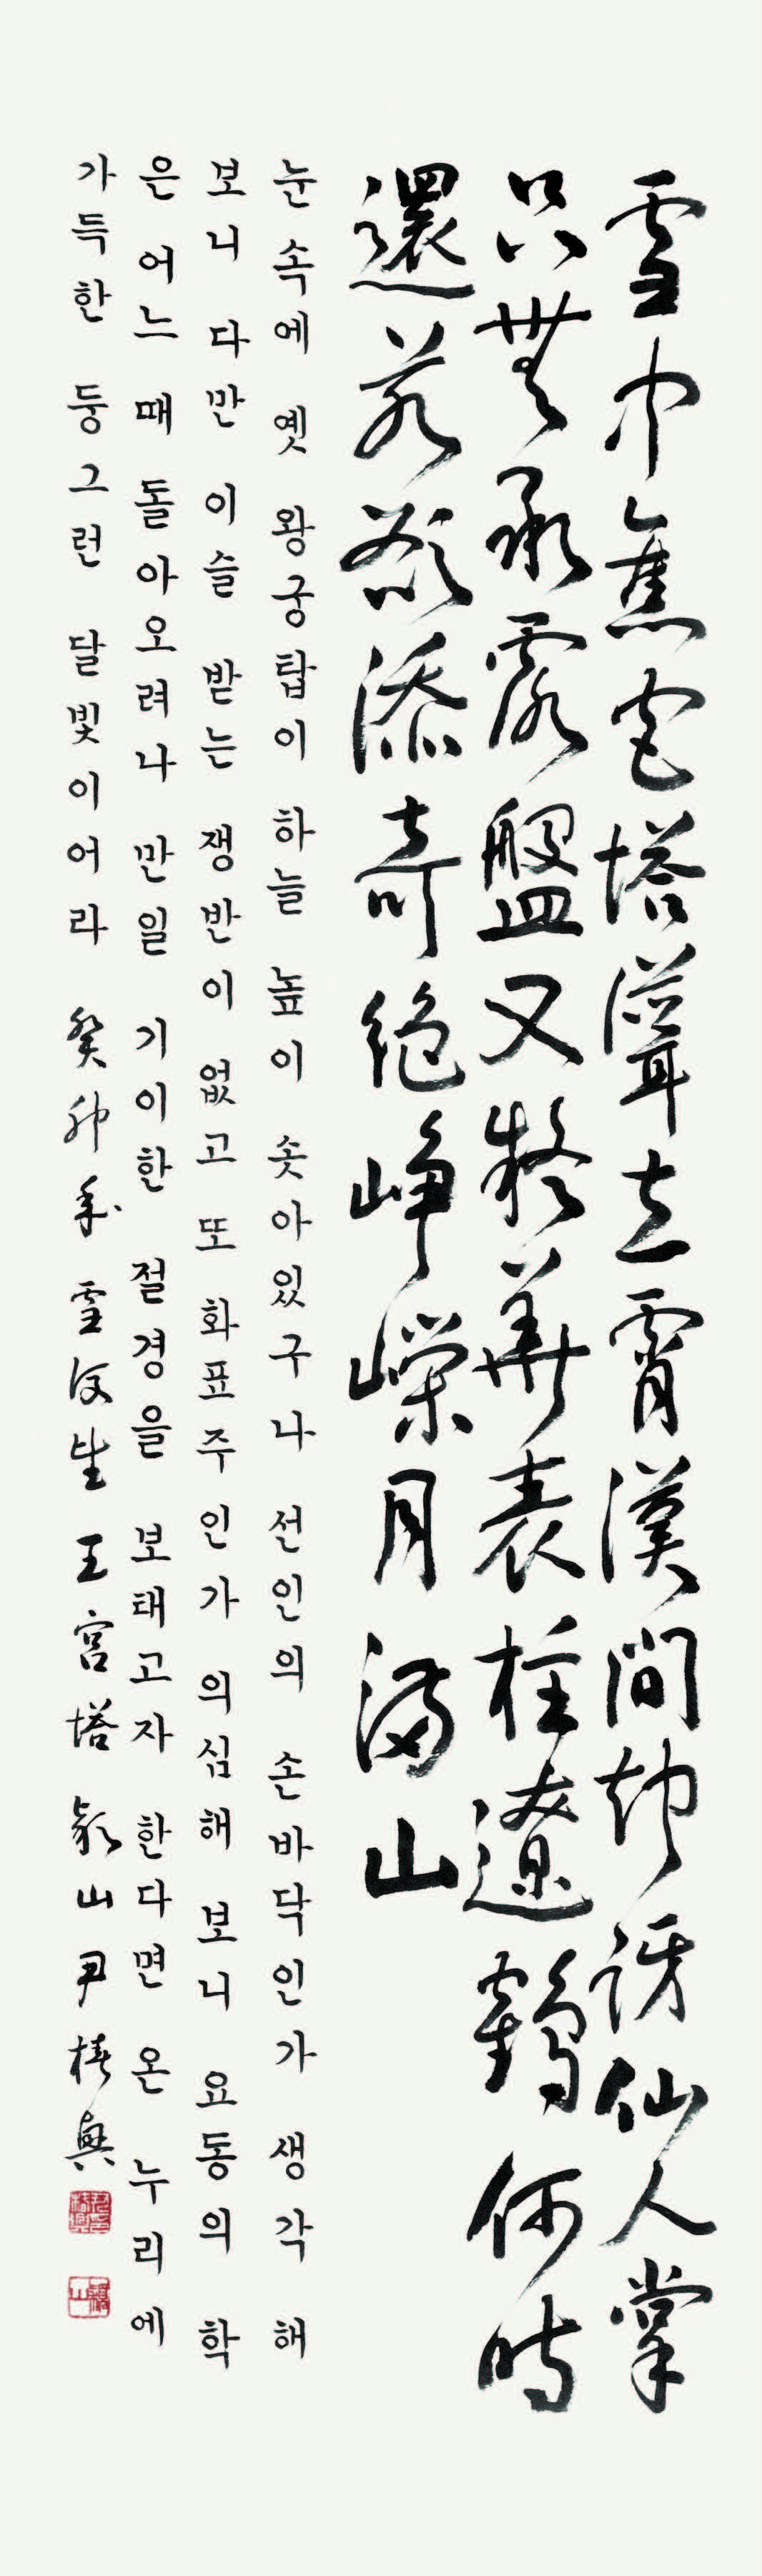 雪中舊宮塔聳立霄漢間却訝仙人掌
只無承露盤又疑華表柱遼鶴何時
還若欲添奇絶崢嶸月滿山
눈 속에 옛 왕궁탑이 하늘 높이 솟아있구나 선인의 손바닥인가 생각 해
보니 다만 이슬 받는 쟁반이 없고 또 화표주인가 의심해 보니 요동의 학
은 어느 때 돌아오려나 만일 기이한 절경을 보태고자 한다면 온 누리에
가득한 둥그런 달빛이어라 癸卯年 雪 生 王宮塔 山 尹椿興